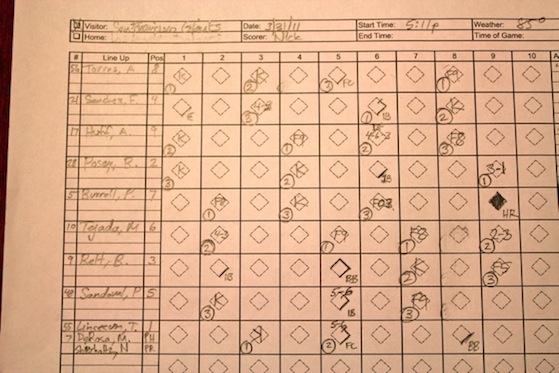 Visitor: San Francisco Giants Date: 3/31/11 Start Time: 5:11p Weather: 85°
Home: Scorer: Nick End Time: Time of Game:
# Line Up Pos 1 2 3 4 5 6 7 8 9 10
Torres, A 8 K 1 K 2 3 FC F9 1
21 Sanchez, F. 4 E 4-3 3 1 1B K 2
17 Huff, A. 9 K 2 F9 1 4-6-3 2 F8 3
28 Posey, B. 2 K 3 K 2 1B 3-1 1
5 Burrell, P. 7 F8 1 K 3 3 HR
10 Tejada, M 6 4-3 2 F9 1 F8 1 2-3 2
9 Belt, B. 3 1B BB K 2 F8 3
48 Sandoval, P 5 K 3 5-6 1B F9 3
55 Lincecum, T. 1 K 3 5-6 2 FC BB
7 DeRosa, M. PH
Schierholtz, N PR